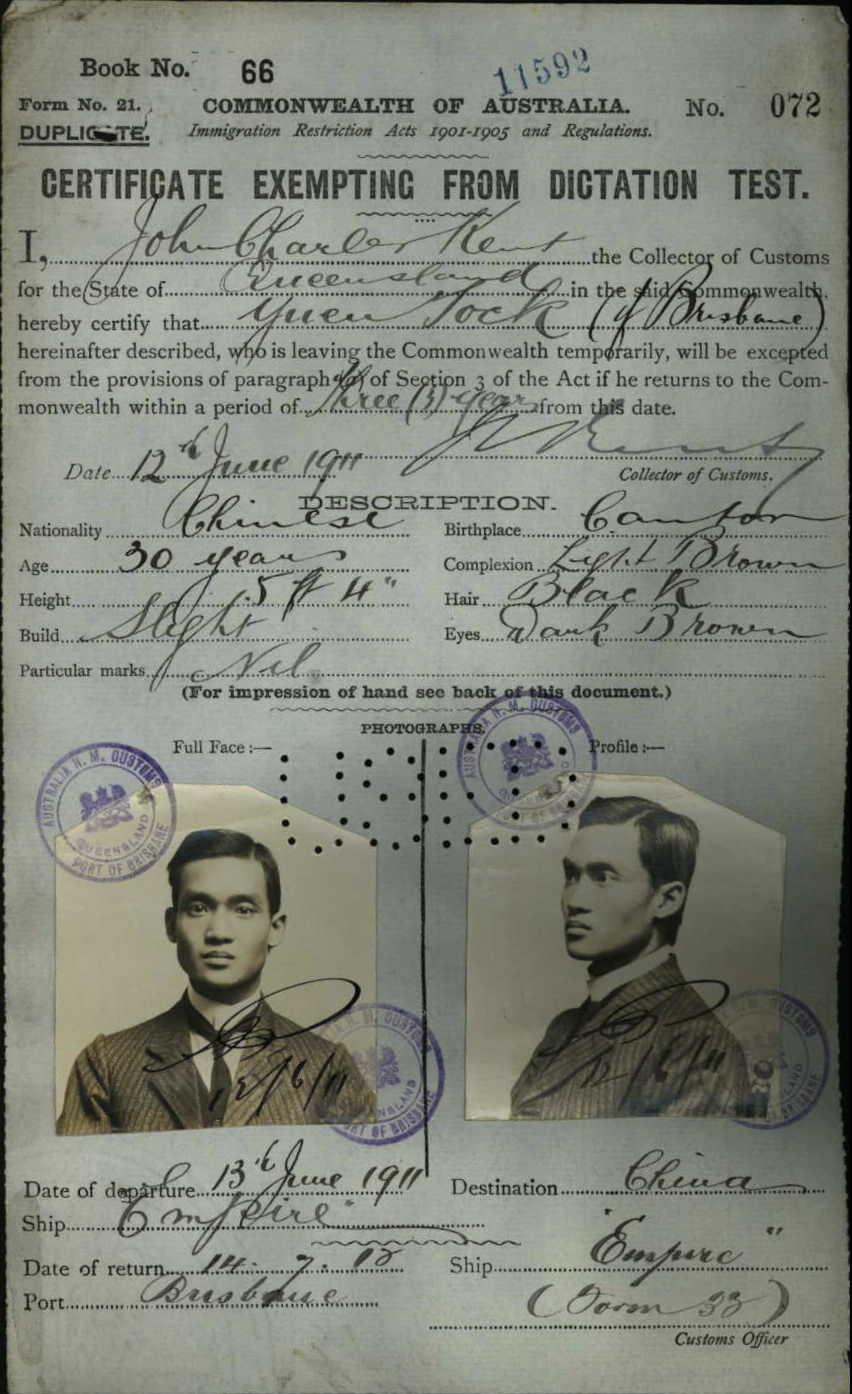 Book No. 66
11592
Form No. 21. COMMONWEALTH OF AUSTRALIA. No. 072
DUPLICATE. Immigration Restriction Acts 1901-1905 and Regulations.
CERTIFICATE EXEMPTING FROM DICTATION TEST.
I, John Charles Kent the Collector of Customs
for the State of Queensland in the said Commonwealth,
hereby certify that Yuen Tock (of Brisbane)
hereinafter described, who is leaving the Commonwealth temporarily, will be excepted
from the provisions of paragraph (a) of Section 3 of the Act if he returns to the Com-
monwealth within a period of Three (3) years from this date.
Date 12th June 1911
Collector of Customs.
DESCRIPTION.
Nationality Chinese Birthplace Canton
Age 30 years Complexion Light Brown
Height 5 ft 4" Hair Black
Build Slight Eyes Dark Brown
Particular marks Nil
(For impression of hand see back of this document.)
PHOTOGRAPHS.
Full Face :— Profile :—
AUSTRALIA H. M. CUSTOMS QUEENSLAND PORT OF BRISBANE
AUSTRALIA H. M. CUSTOMS
12/6/11 12/6/11
Date of departure 13th June 1911 Destination China
Ship "Empire"
Date of return 14. 7. 12 Ship "Empire"
Port Brisbane (Form 32)
Customs Officer